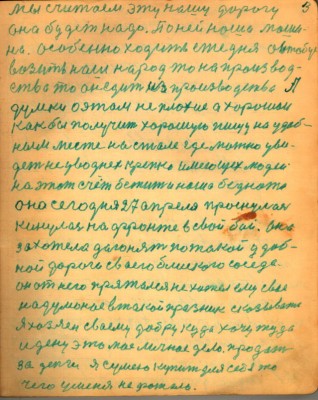 5
Мы считаем эту нашу дорогу
она будет надо. По ней наша маши-
на. особенно ходить сегодня автобус
возить наш народ то на производ-
ство то с недит из производства А
думки о этом не плохие а хорошии
как бы получит хорошую пищу на удоб-
ном месте на стале где можно уви-
дет не уводнех крепко имеющих модел
на этот счёт бежить наша беднота
она сегодня 27 апреля проснулас
кинулас на фронте в свой бой. она
захотела догонят по такой удоб-
ной дороге своего близкого соседа.
он от него прятался не хотел ему свае
надуманае в такой празник сказывать
я хозяен своему добру куда хочу туда
и дену это мае личнае дело. продат
за денги. я сумею купит для себя то
чего у меня не